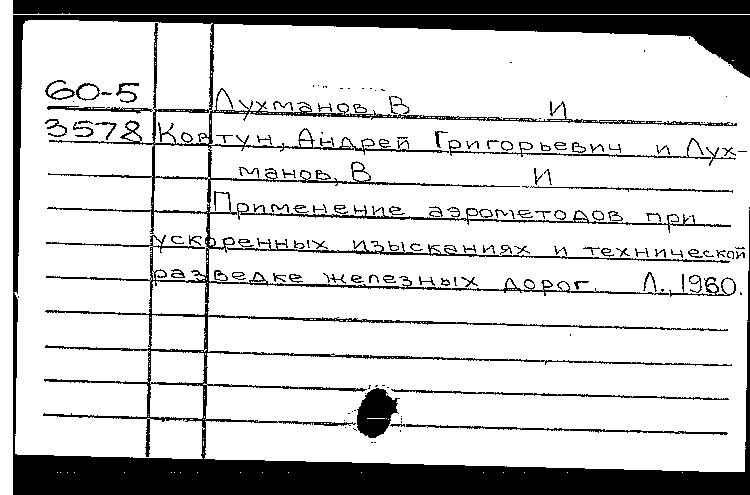 60-5 Лухманов, В И
3578 Ковтун, Андрей Григорьевич и Лух-
манов, В И
Применение аэрометодов при
ускоренных изысканиях и технической
разведке железных дорог. Л., 1960.